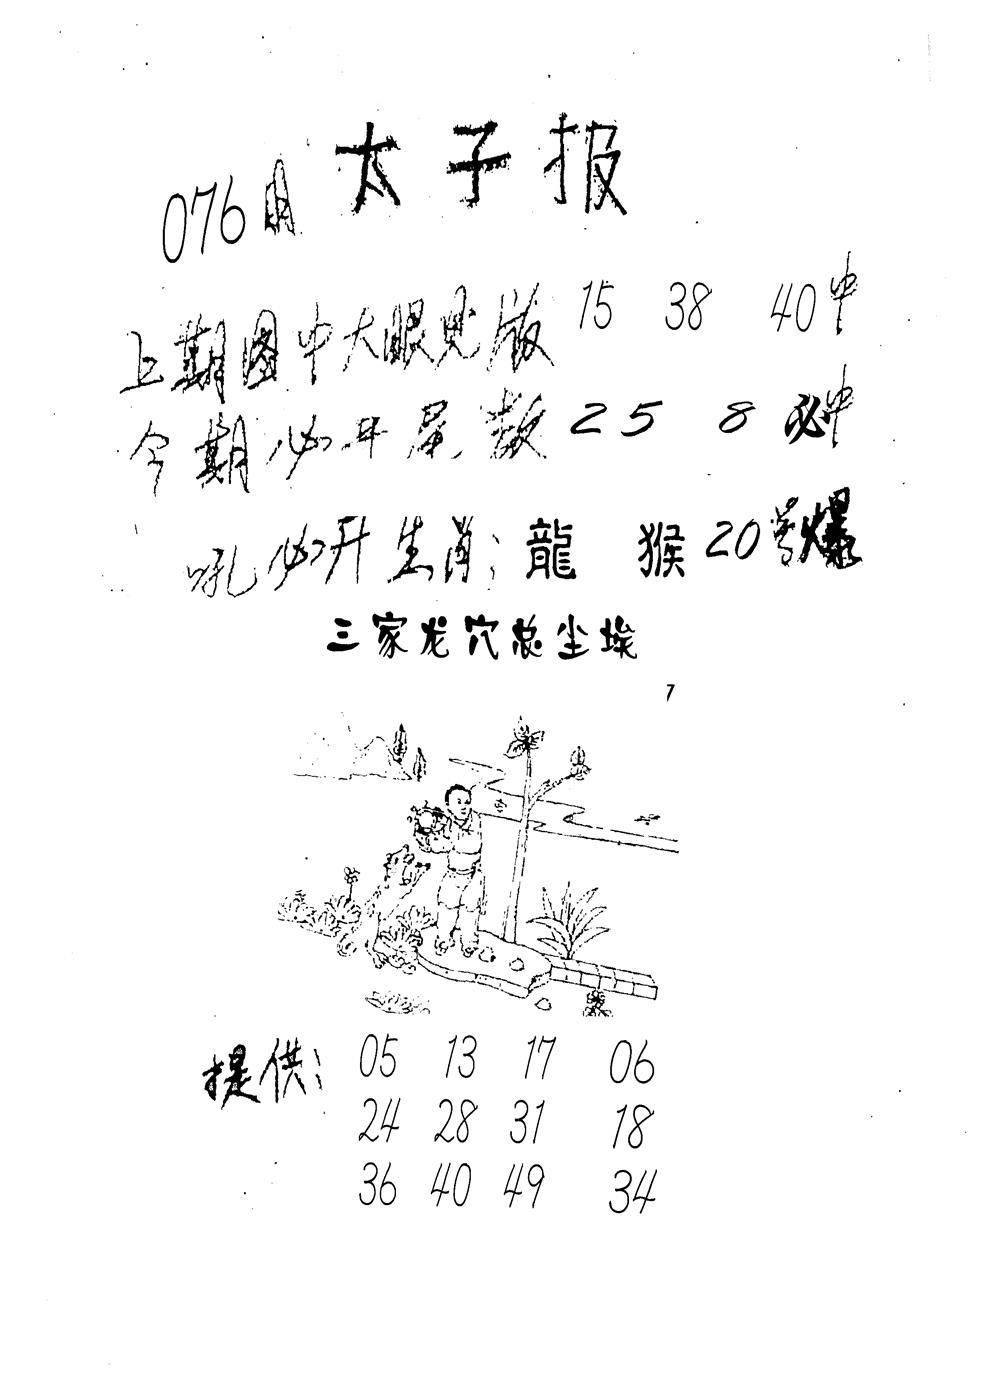 太子报
076期
上期图中大眼见版 15 38 40中
今期必开尾数 2 5 8 必中
吼必开生肖：龍 猴 20号爆
三家龙穴总尘埃
7
提供： 05 13 17 06
24 28 31 18
36 40 49 34